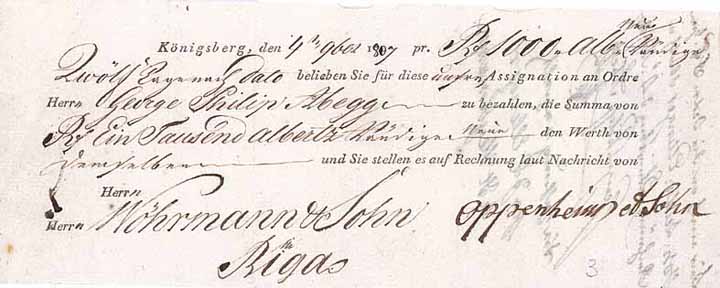 Neue
Königsberg, den 4ten 9ber 1807 pr. Rf 1000 „ Alb„ Rändige
Zwölf Tage nach dato belieben Sie für diese unsre Assignation an Ordre
Herrn George Philip Abegg zu bezahlen, die Summa von
Rf Ein Tausend Albertz Rändige Neue den Werth von
demselben und Sie stellen es auf Rechnung laut Nachricht von
Herrn
Herrn Wöhrmann & Sohn Oppenheim et Sohn
Riga
3